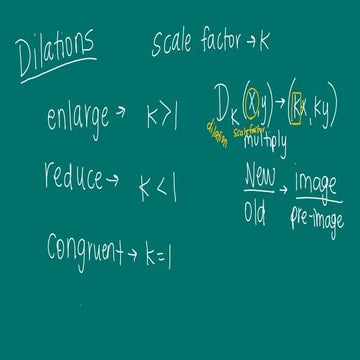 Dilations
scale factor → k
enlarge → k>1
reduce → k<1
congruent → k=1
D_k (x,y) → (kx, ky)
dilation scale factor
multiply
New → image
Old pre-image